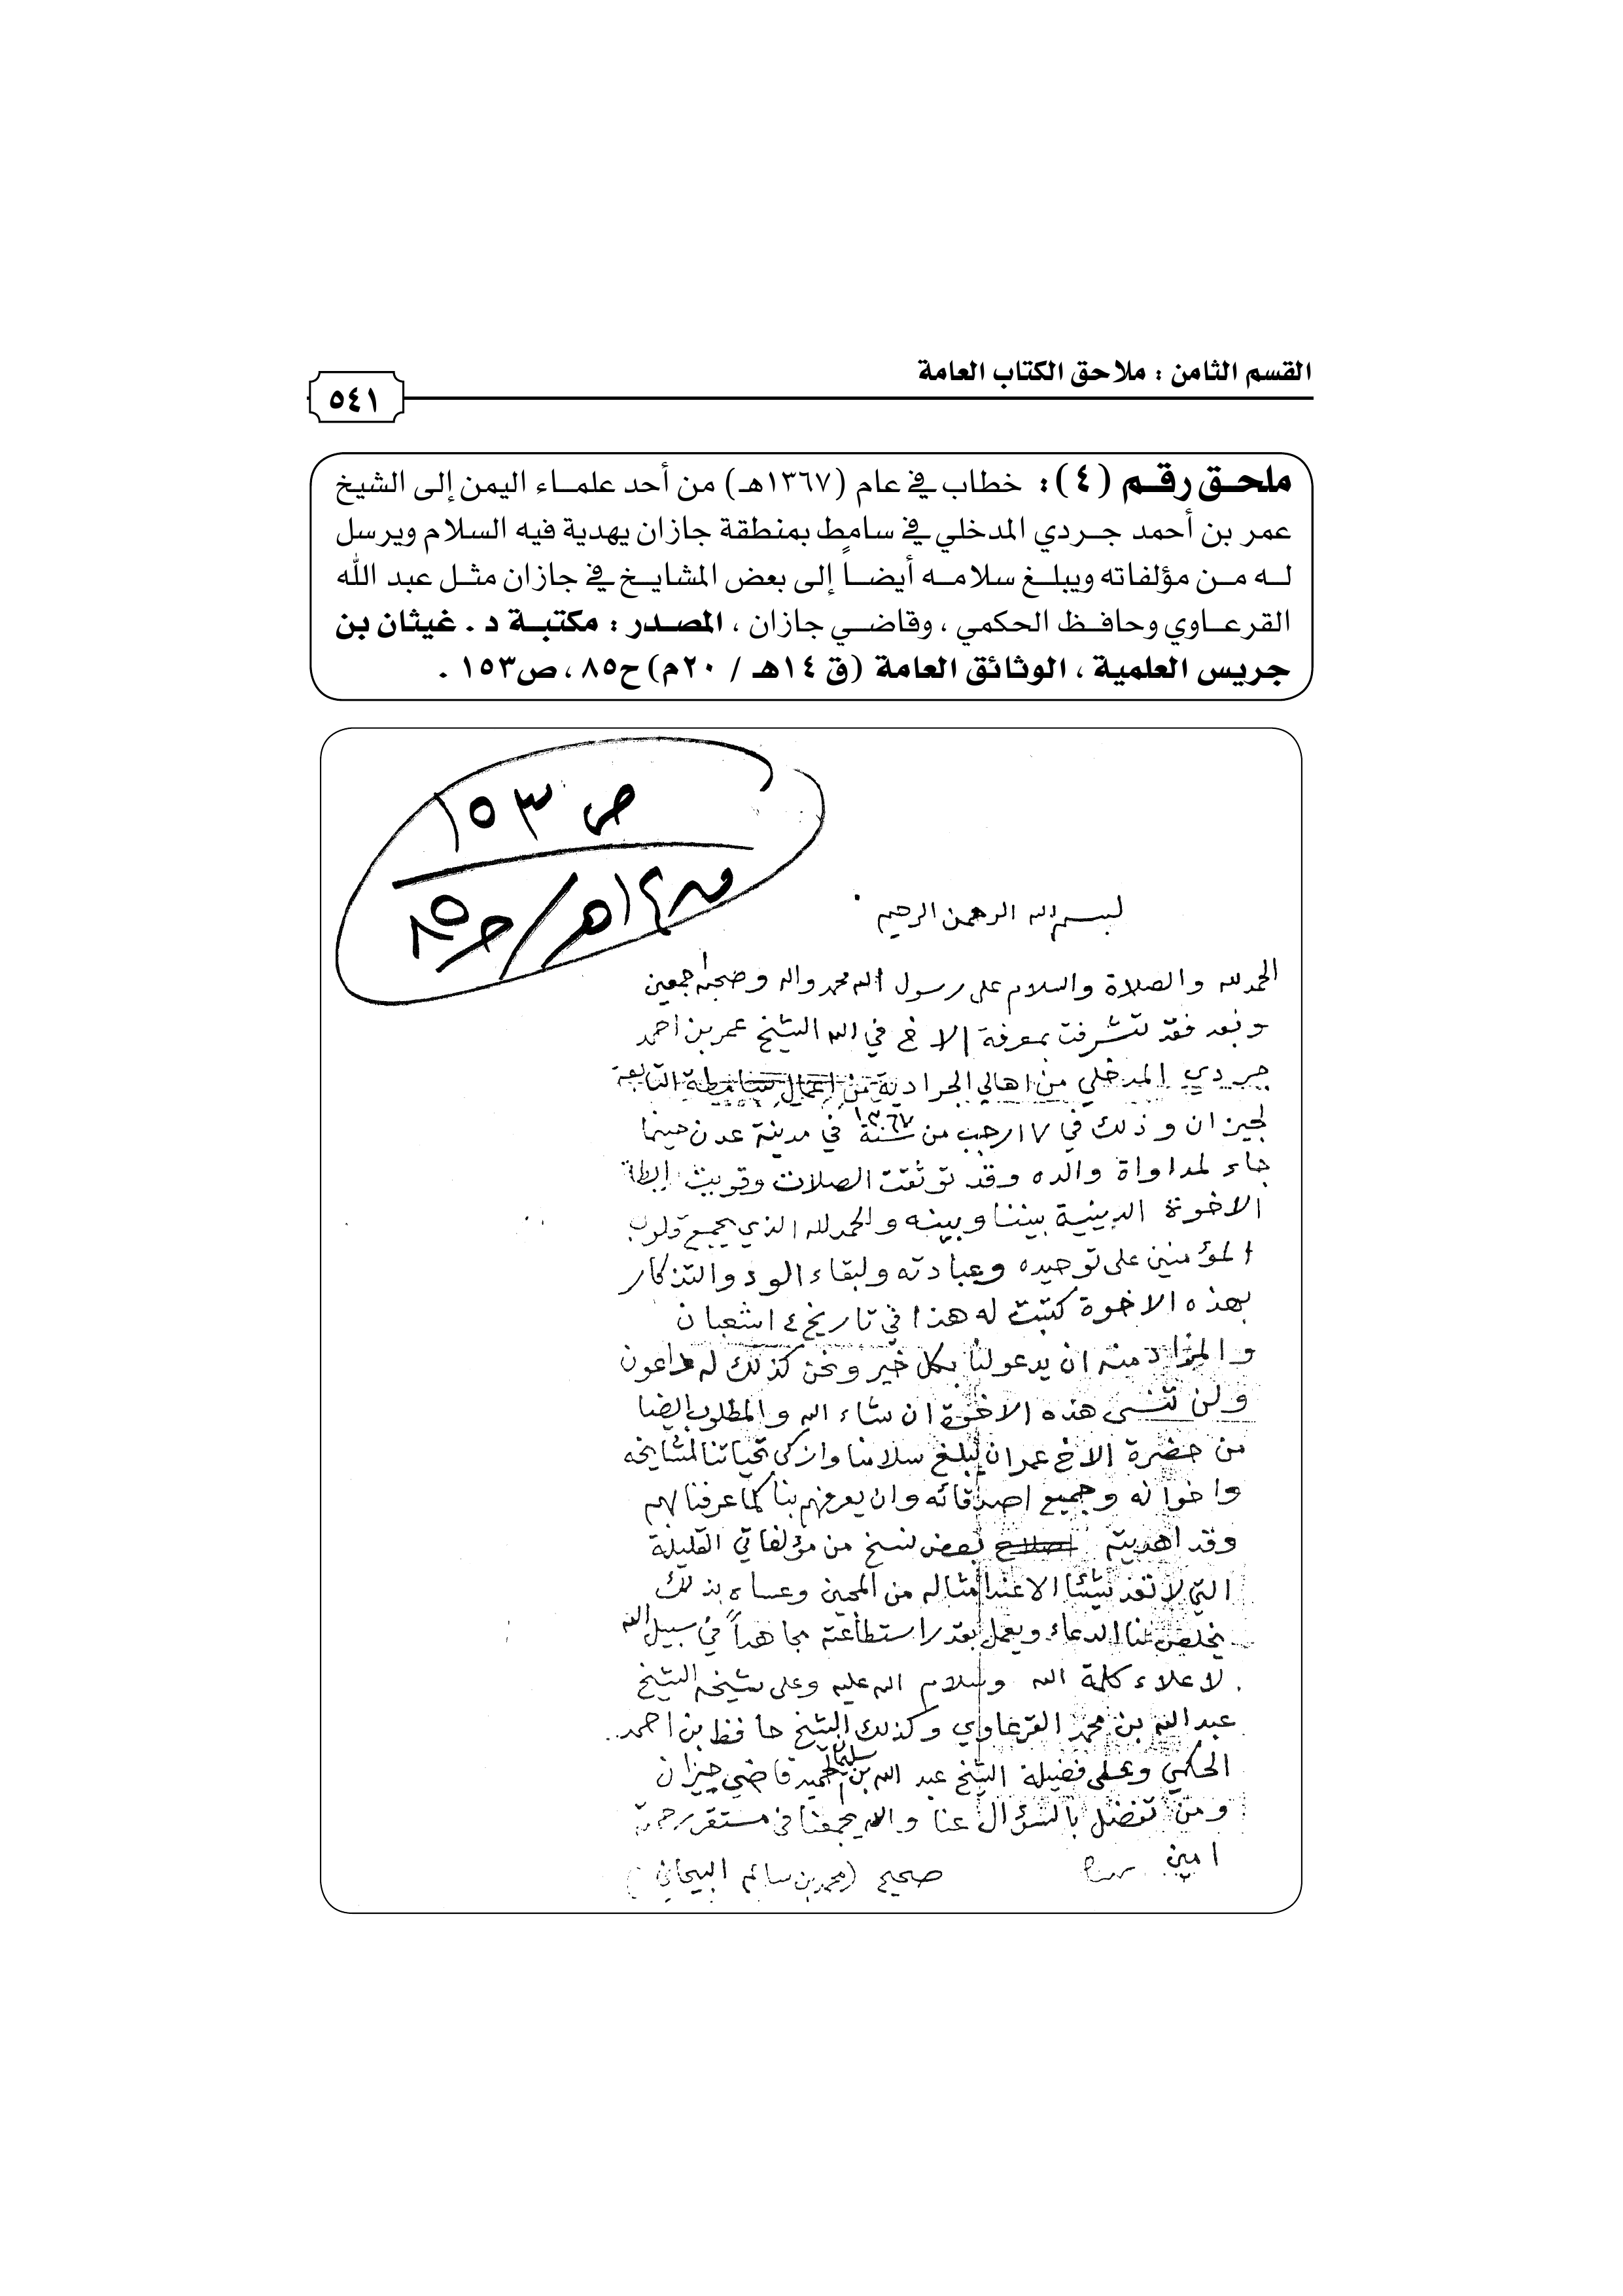 القسم الثامن : ملاحق الكتاب العامة
٥٤١
ملحق رقم (٤): خطاب في عام (١٣٦٧هـ) من أحد علماء اليمن إلى الشيخ
عمر بن أحمد جردي المدخلي في سامطٍ بمنطقة جازان يهدية فيه السلام ويرسل
له من مؤلفاته ويبلغ سلامه أيضاً إلى بعض المشايخ في جازان مثل عبد الله
القرعاوي وحافظ الحكمي ، وقاضي جازان ، المصدر : مكتبة د . غيثان بن
جريس العلمية ، الوثائق العامة (ق ١٤هـ / ٢٠م) ح٨٥ ، ص١٥٣ .
ص ١٥٣
ق١٤هـ / ح٨٥
بسم الله الرحمن الرحيم
الحمد لله والصلاة والسلام على رسول الله محمد واله وصحبه اجمعين
وبعد فقد تشرفت بمعرفة الاخ في الله الشيخ عمر بن احمد
جردي المدخلي من اهالي الجرادية من اعمال سامطة التابعة
لجيزان وذلك في ١٧ رجب من سنة ١٣٦٧ في مدينة عدن حينما
جاء لمداواة والده وقد توثقت الصلات وقويت رابطة
الاخوة الدينية بيننا وبينه والحمد لله الذي يجمع قلوب
المؤمنين على توحيده وعبادته ولبقاء الود والتذكار
بهذه الاخوة كتبت له هذا في تاريخ ١٤ شعبان
والمراد منه ان يدعو لنا بكل خير ونحن كذلك له داعون
ولن تنسى هذه الاخوة ان شاء الله والمطلوب ايضا
من حضرة الاخ عمر ان يبلغ سلامنا وازكى تحياتنا لمشايخه
واخوانه وجميع اصدقائه وان يعرفهم بنا كما عرفنا بهم
وقد اهديته بعض نسخ من مؤلفاتي القليلة
التي لا تعد شيئا الا عند امثاله من المحبين وعساه بذلك
يخلص لنا الدعاء ويعمل بقدر استطاعته مجاهداً في سبيل الله
لاعلاء كلمة الله وسلام الله عليه وعلى شيخه الشيخ
عبد الله بن محمد القرعاوي وكذلك الشيخ حافظ بن احمد
الحكمي وعلى فضيلة الشيخ عبد الله بن سليمان الحميد قاضي جيزان
ومن تفضل بالسؤال عنا والله يجمعنا في مستقر رحمته
امين
صحيح (محمد بن سالم البيحاني)